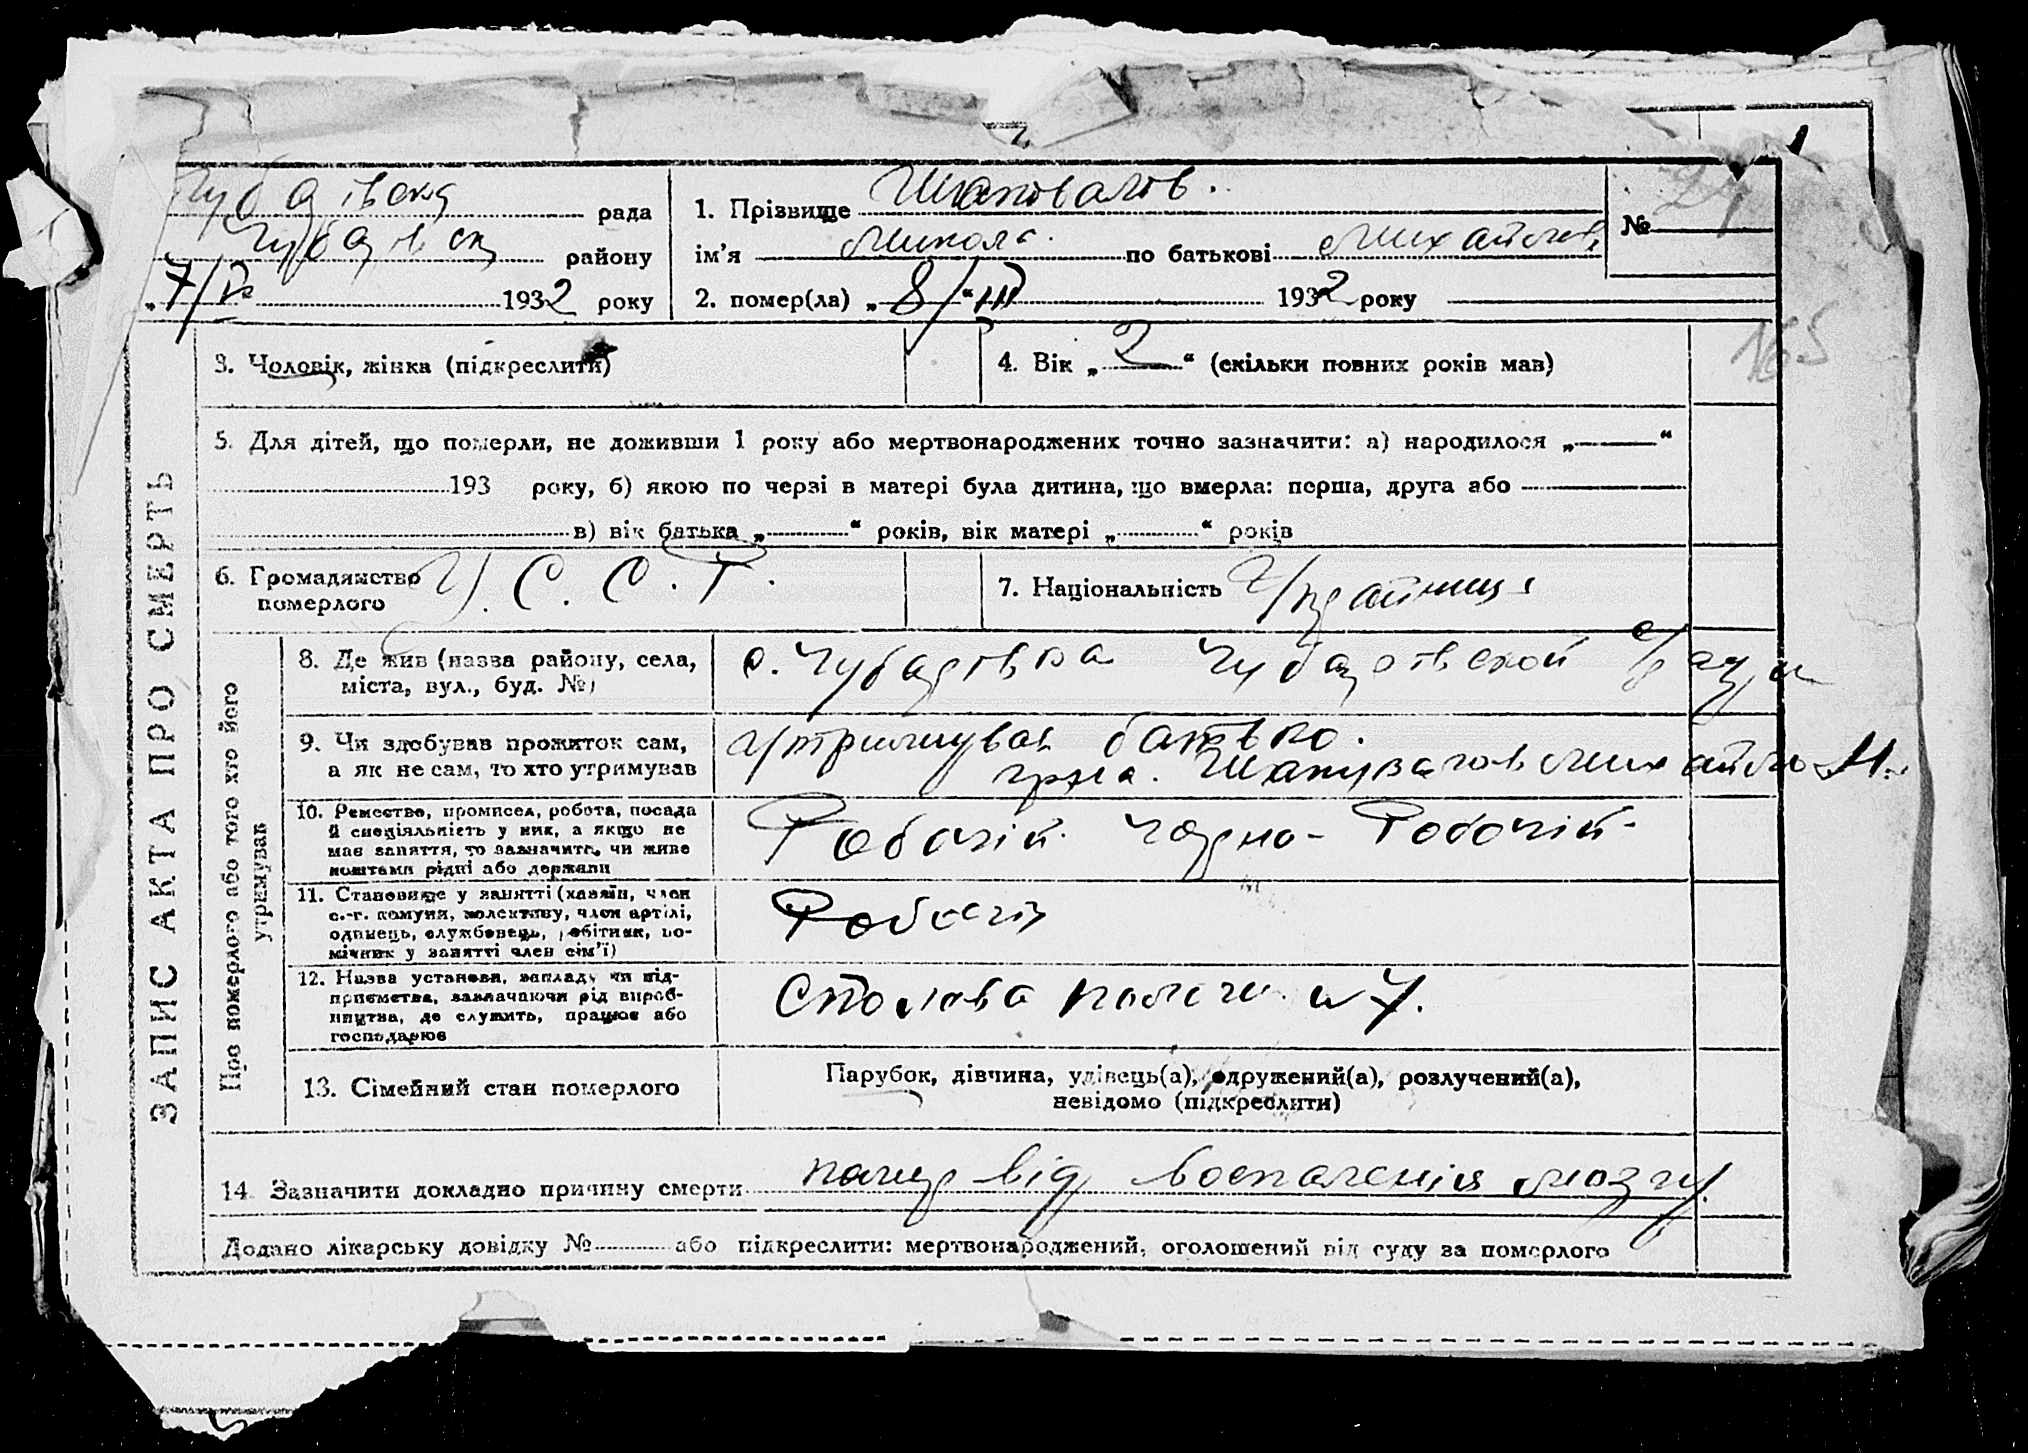 рада
району
7/V 1932 року
1. Прізвище Шаповалов.
ім'я Микола по батькові Михайлов.
2. помер(ла) „8/“ III 1932 року
№
№5
ЗАПИС АКТА ПРО СМЕРТЬ
3. Чоловік, жінка (підкреслити)
4. Вік „2“ (скільки повних років мав)
5. Для дітей, що померли, не доживши 1 року або мертвонароджених точно зазначити: а) народилося „ “
193 року, б) якою по черзі в матері була дитина, що вмерла: перша, друга або
в) вік батька „ “ років, вік матері „ “ років
6. Громадянство
померлого
У. С. С. Р.
7. Національність Українець
Про померлого або того хто його
утримував
8. Де жив (назва району, села,
міста, вул., буд. №)
с.
9. Чи здобував прожиток сам,
а як не сам, то хто утримував
утримував батько.
Шаповалов Михайло М.
10. Ремество, промисел, робота, посада
й спеціяльність у них, а якщо не
має заняття, то зазначити, чи живе
коштами рідні або держави
Робочій чорно-Робочій
11. Становище у занятті (хазяїн, член
с.-г. комуни, колективу, член артілі,
одинець, службовець, робітник, по-
мічник у занятті член сім'ї)
Робочій
12. Назва установи, закладу чи під-
приємства, зазначаючи рід вироб-
ництва, де служить, працює або
господарює
Столова 7.
13. Сімейний стан померлого
Парубок, дівчина, удівець(а), одружений(а), розлучений(а),
невідомо (підкреслити)
14. Зазначити докладно причину смерти від воспаленія мозгу.
Додано лікарську довідку № або підкреслити: мертвонароджений, оголошений від суду за померлого